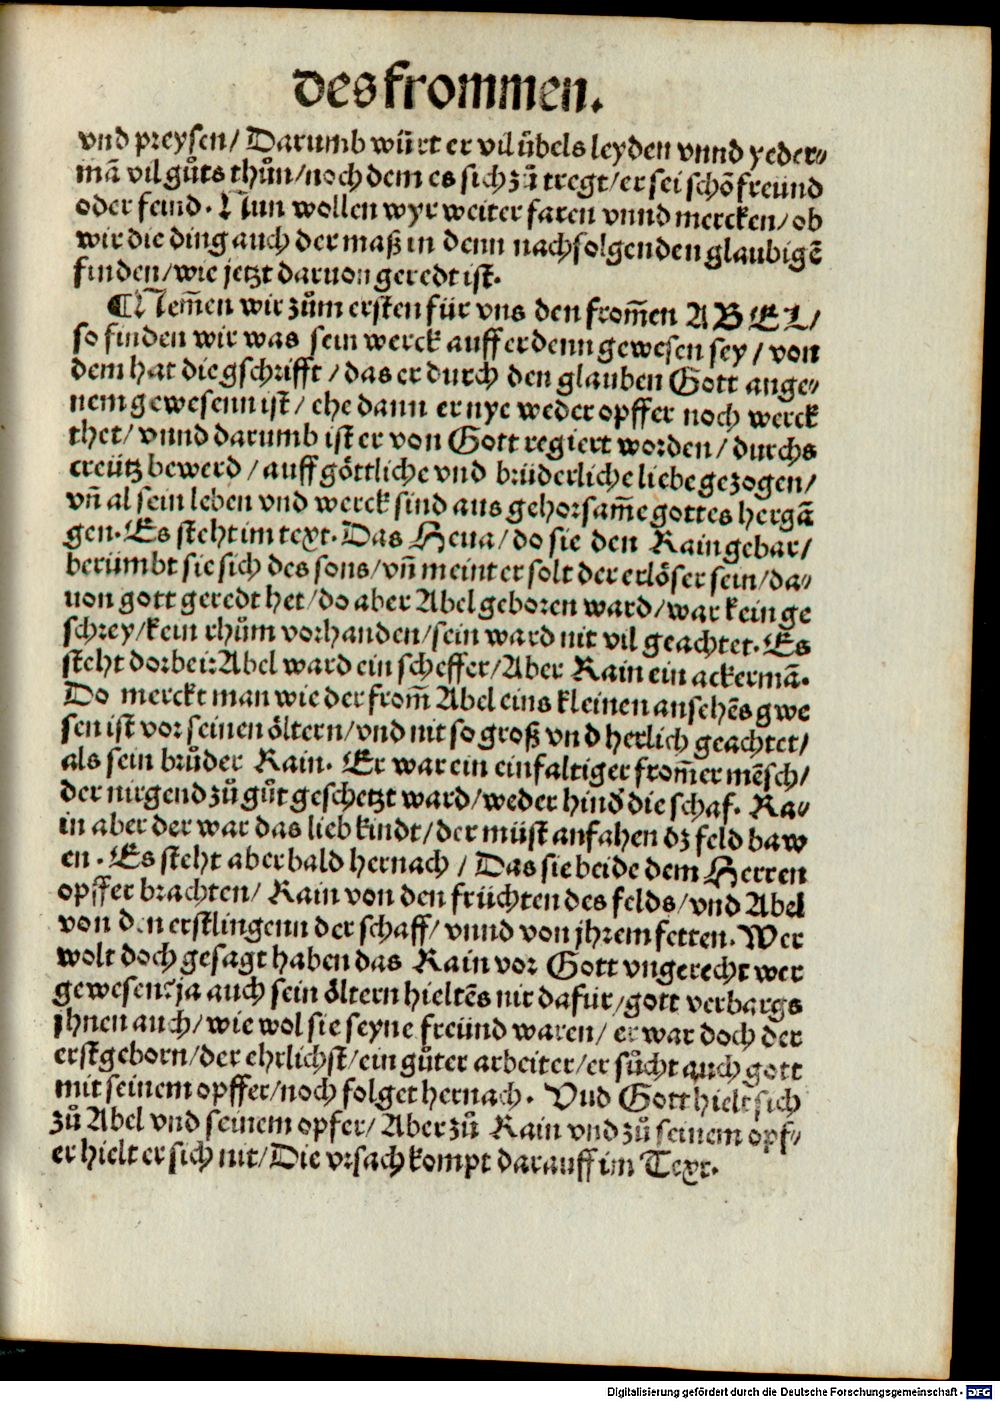 des frommen.
vnd preysen/ Darumb würt er vil übels leyden vnnd yeder⸗
mã vil gůts thůn/noch dem es sich zů tregt/er sei schõ freünd
oder feind. Nun wollen wyr weiter faren vnnd mercken/ob
wir die ding auch der maß in denn nachfolgenden glaubigẽ
finden/wie jetzt daruon geredt ist.
¶Nem̃en wir zům ersten für vns den from̃en ABEL/
so finden wir was sein werck auff erdenn gewesen sey/von
dem hat die gschrifft/das er durch den glauben Gott ange⸗
nem gewesenn ist/ehe dann er nye weder opffer noch werck
thet/vnnd darumb ist er von Gott regiert worden/durchs
creütz bewerd/auff göttliche vnd brüderliche liebe gezogen/
vñ al sein leben vnd werck sind aus gehorsam̃e gottes hergã
gen. Es steht im text. Das Heua/do sie den Kain gebar/
berümbt sie sich des sons/vñ meint er solt der erlöser sein/da⸗
uon gott geredt het/do aber Abel geboren ward/war kein ge
schrey/kein rhům vorhanden/sein ward nit vil geachtet. Es
steht dorbei: Abel ward ein scheffer/Aber Kain ein ackermã.
Do merckt man wie der from̃ Abel eins kleinen ansehẽs gwe
sen ist vor seinen öltern/vnd nit so groß vnd herlich geachtet/
als sein brůder Kain. Er war ein einfaltiger from̃er mẽsch/
der nirgend zů gůt geschetzt ward/weder hind̾ die schaf. Ka⸗
in aber der war das lieb kindt/der müst anfahen dz feld baw
en. Es steht aber bald hernach/Das sie beide dem Herren
opffer brachten/Kain von den früchten des felds/vnd Abel
von den erstlingenn der schaff/vnnd von jhrem fetten. Wer
wolt doch gesagt haben das Kain vor Gott vngerecht wer
gewesen? ja auch sein öltern hieltẽs nit dafür/gott verbargs
jhnen auch/wie wol sie seyne freünd waren/er war doch der
erstgeborn/der ehrlichst/ein gůter arbeiter/er sůcht auch gott
mit seinem opffer/noch folget hernach. Vnd Gott hielt sich
zů Abel vnd seinem opfer/Aber zů Kain vnd zů seinem opf⸗
er hielt er sich nit/Die vrsach kompt darauff im Text.
Digitalisierung gefördert durch die Deutsche Forschungsgemeinschaft - DFG